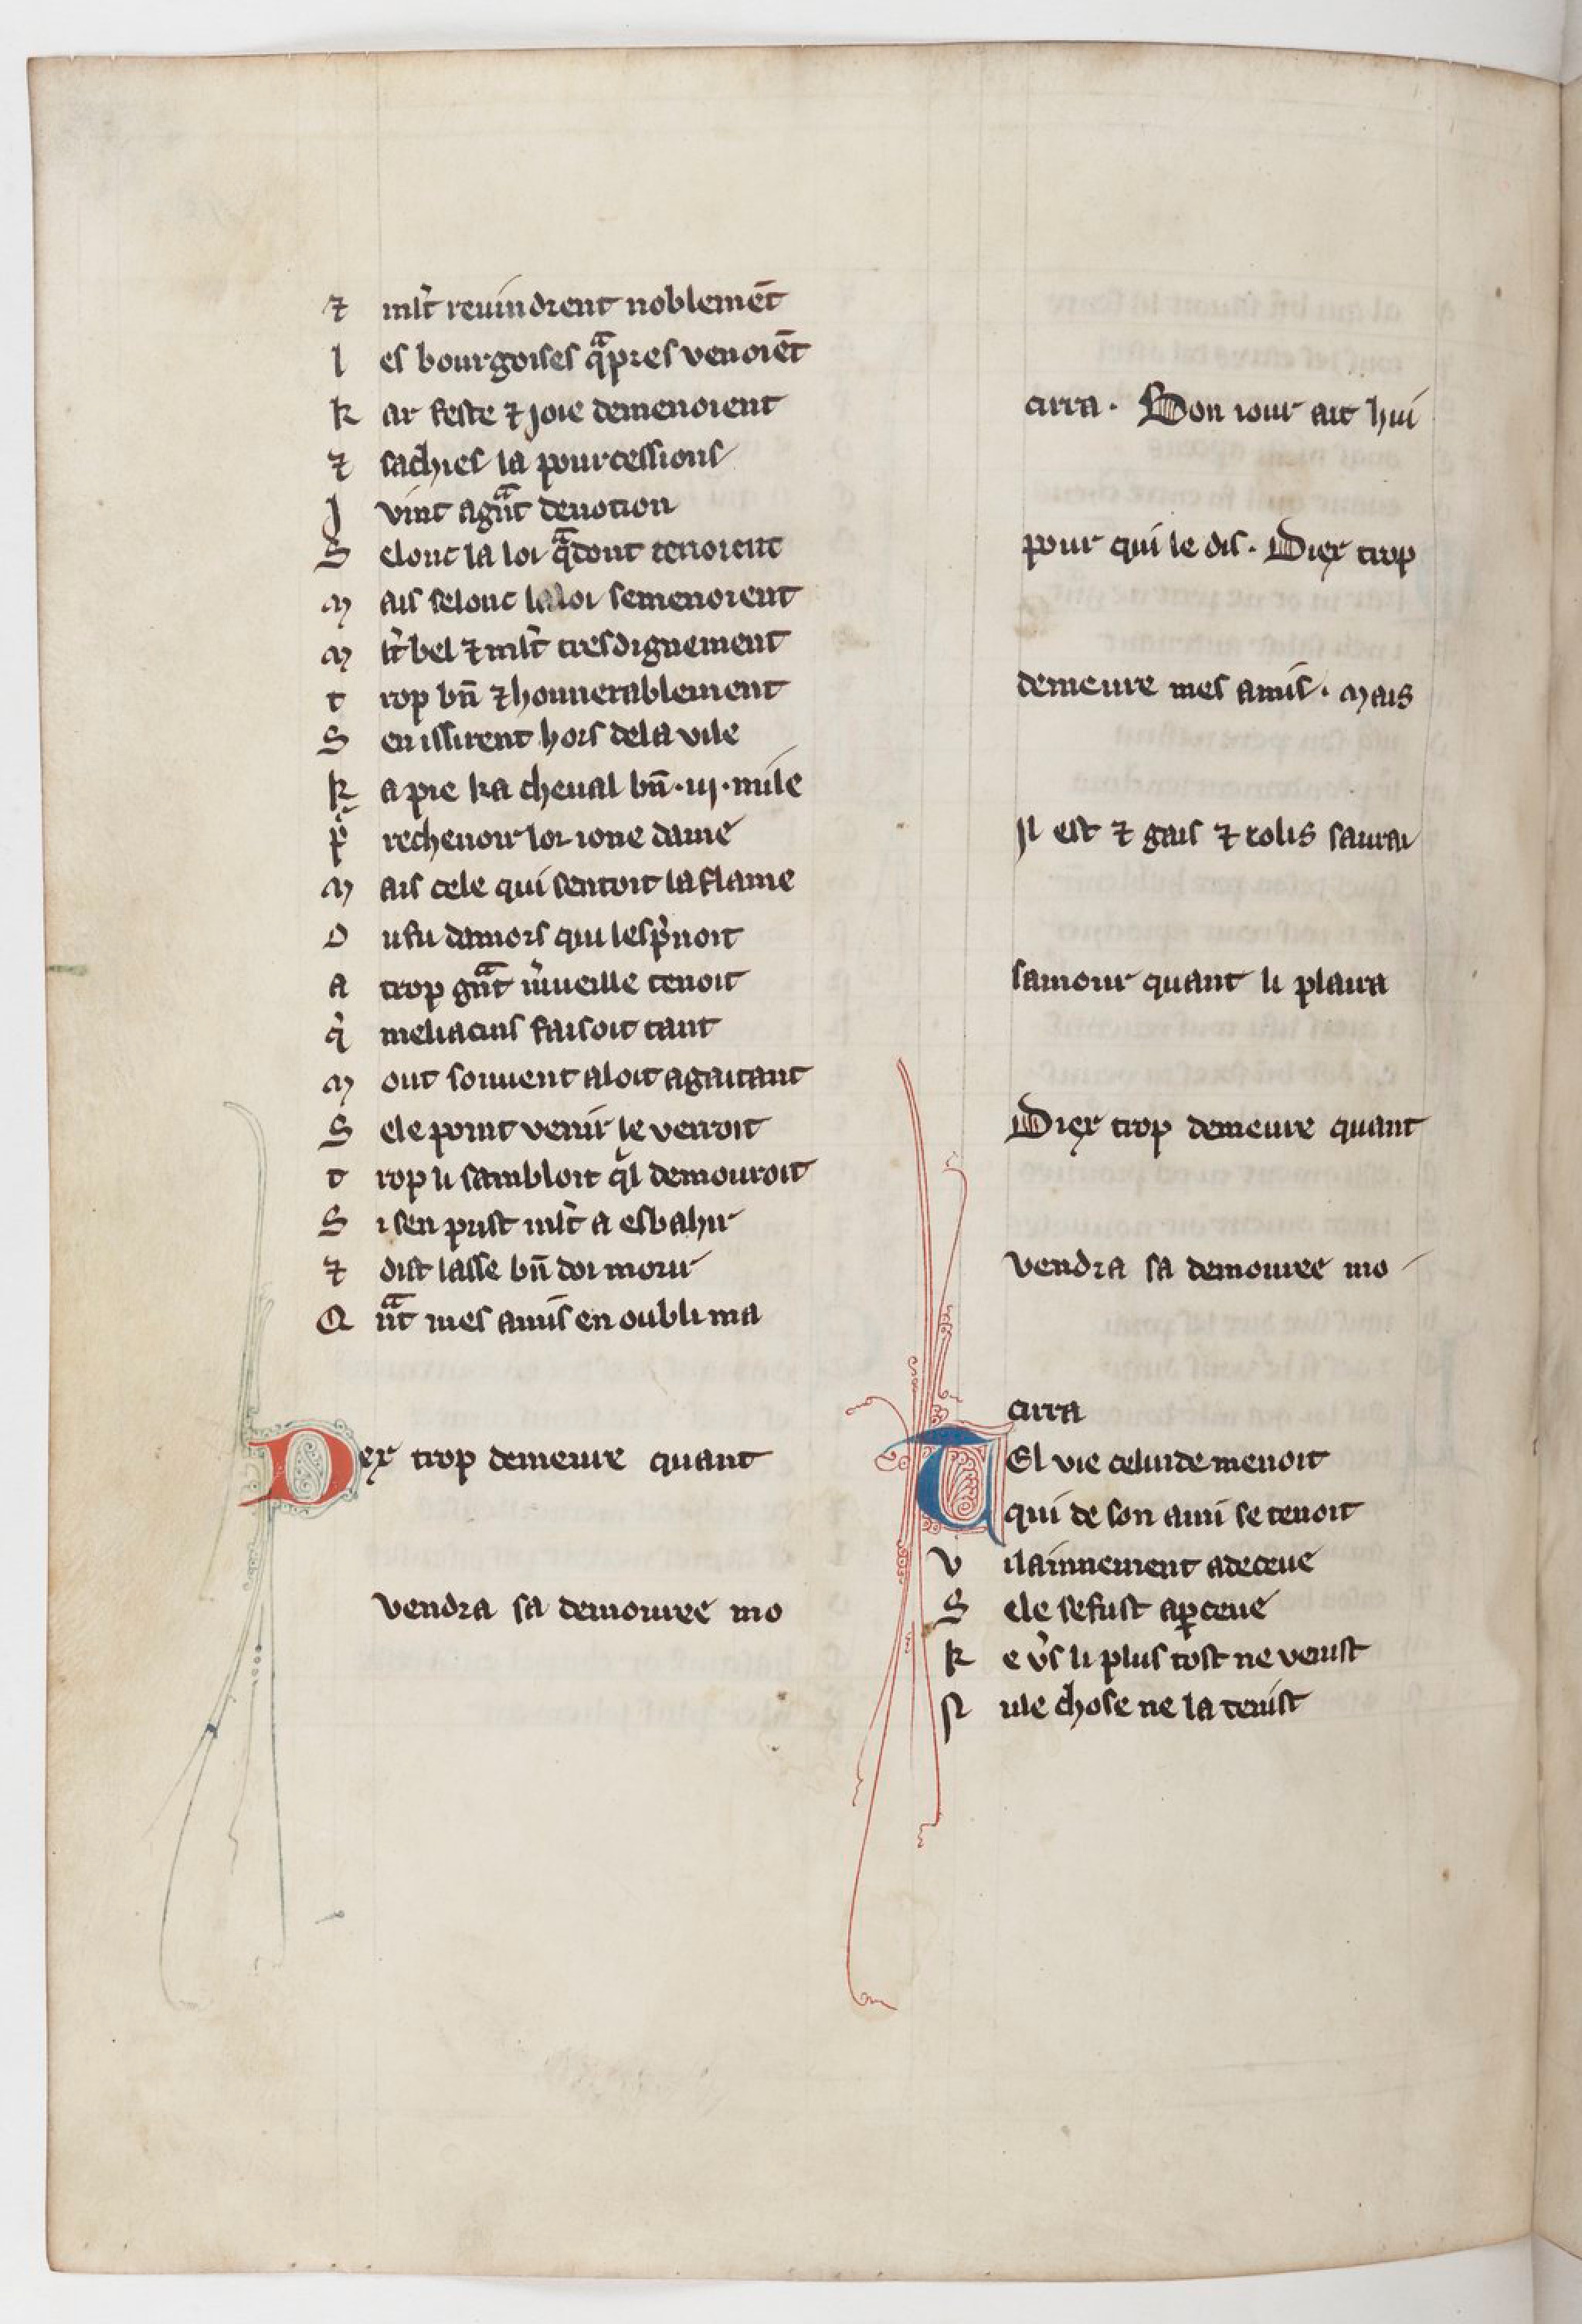 ⁊ ml̃t reuindrent noblemẽt
l es bourgoises q̃ apres venoiẽt
k ar feste ⁊ joie demenoient
⁊ sachies la pourcessions
J vint a gñt deuotion
S elonc la loi q̃ dont tenoient
m ais selonc la loi semenoient
m l̃t bel ⁊ ml̃t tresdignement
t rop bñ ⁊ honnerablement
S en issirent hors dela vile
k a pie ka cheual bñ .iij. mile
p̃ rechenoir lor ione dame
m ais cele qui sentoit la flame
D u fu damors qui lesp̃noit
a trop gñt m̃ueille tenoit
q̃ meliacins faisoit tant
m out souuent aloit agaitant
S ele point venir le verroit
t rop li sambloit q̃l demouroit
S i sen prist ml̃t a esbahir
⁊ dist lasse bñ doi morir
Q ñt mes amis en oubli ma
Dex trop demeure quant
vendra sa demouree mo
cirra. Bon iour ait hui
pour qui le dis. Diex trop
demeure mes amis. Mais
Il est ⁊ gais ⁊ iolis saurai
samour quant li plaira
Diex trop demeure quant
vendra sa demouree mo
cirra
TEl vie celui demenoit
qui de son ami se tenoit
v ilainnement adeceue
S ele sefust ap̱ceue
k e v̾s li plus tost ne venist
N ule chose ne la tenist